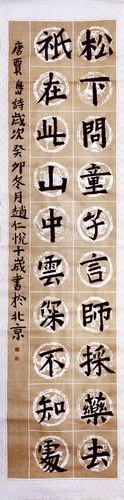 松下問童子言師採藥去
祇在此山中雲深不知處
唐賈島詩歲次癸卯冬月趙仁悅十歲書於北京